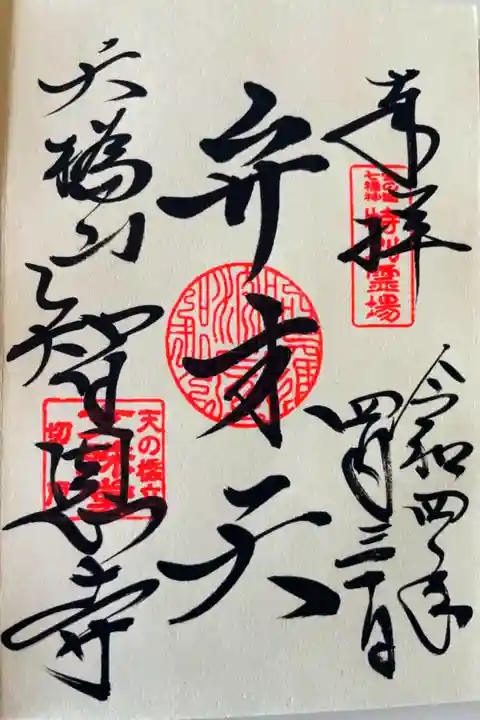 奉拝
令和四年
四月三十日
弁才天
天橋山
智恩寺
霊場
七福神
天の橋立
切戸